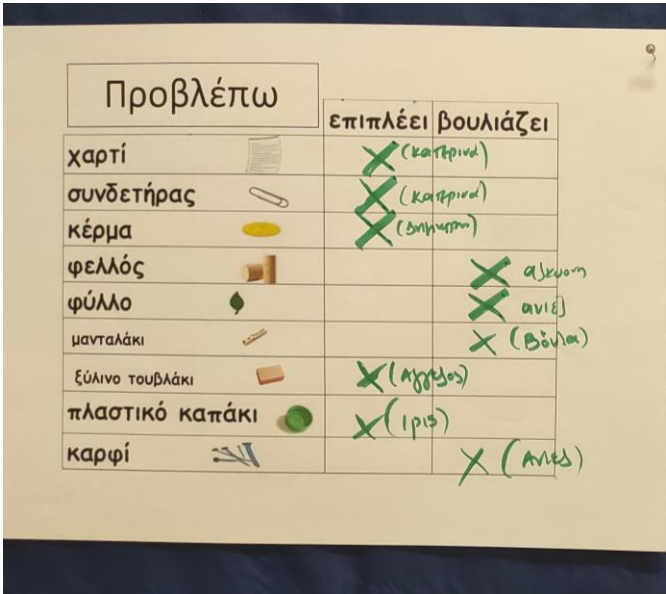 Προβλέπω
επιπλέει βουλιάζει
χαρτί X (κατερινα)
συνδετήρας X (κατερινα)
κέρμα X (Δημητρη)
φελλός X αλκυονη
φύλλο X ανιές
μανταλάκι X (Βούλα)
ξύλινο τουβλάκι X (Αγγελος)
πλαστικό καπάκι X (Ιρις)
καρφί X (Ανιες)